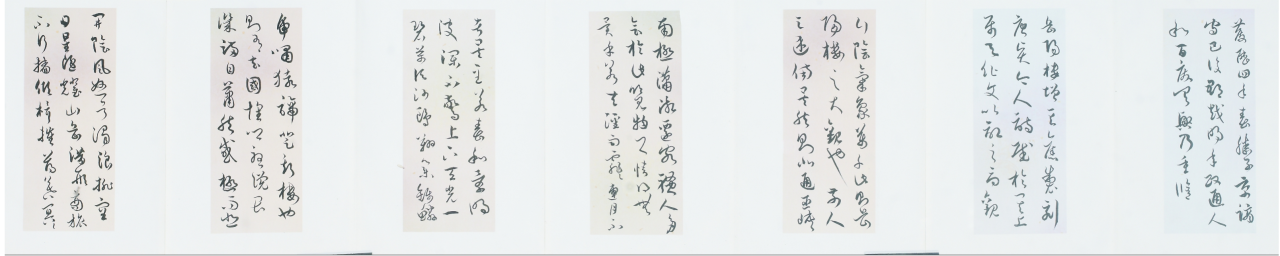 慶曆四年春滕子京謫
守巴陵郡越明年政通人
和百廢具興乃重脩
岳陽樓增其舊制刻
唐賢今人詩賦於其上
屬予作文以記之予觀
夕陰氣象萬千此則岳
陽樓之大觀也前人
之述備矣然則北通巫峽
南極瀟湘遷客騷人多
會於此覽物之情得無
異乎若夫霪雨霏霏連月不
者矣至若春和景明
波瀾不驚上下天光一
碧萬頃沙鷗翔集錦鱗
虎嘯猿啼登斯樓也
則有去國懷鄉憂讒畏
譏滿目蕭然感極而悲
開陰風怒號濁浪排空
日星隱耀山岳潛形商旅
不行檣傾楫摧薄暮冥冥